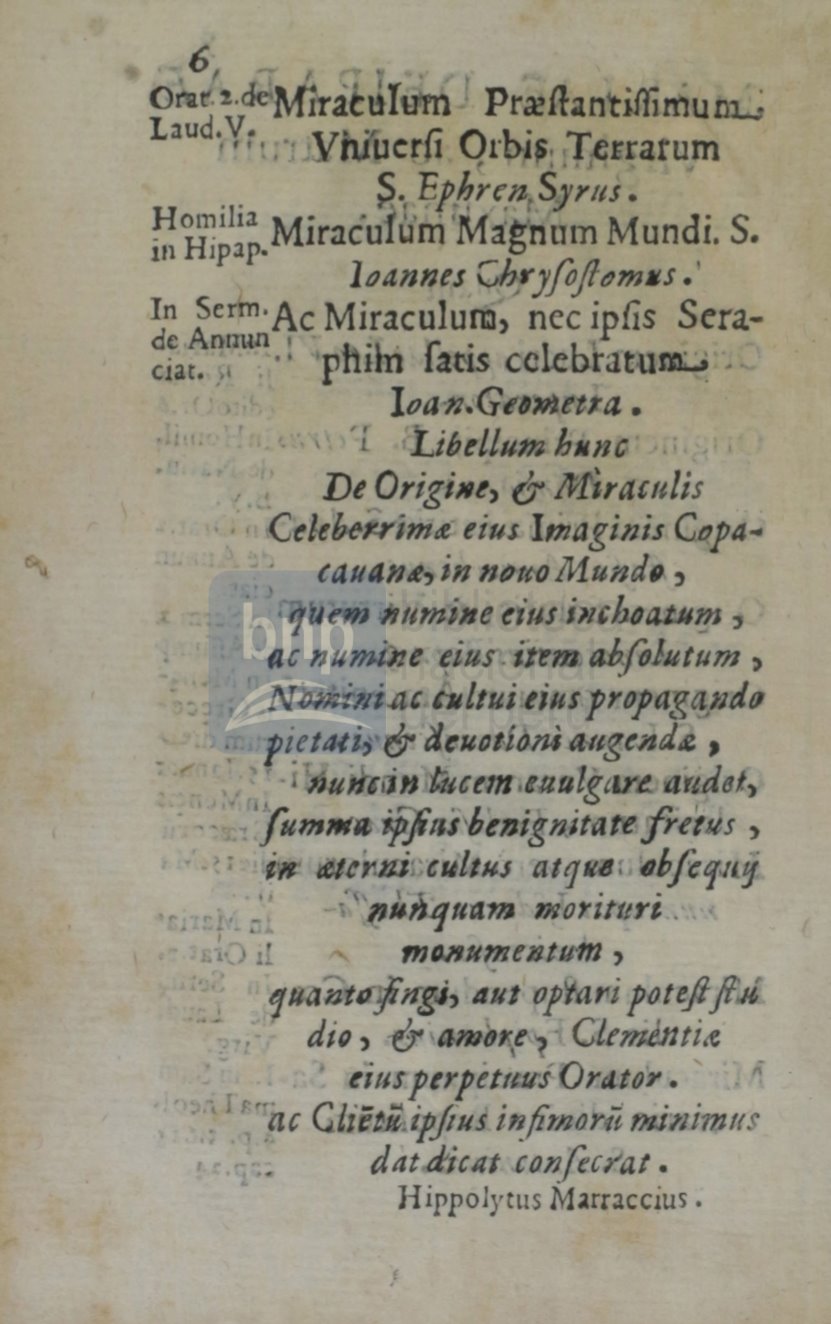 6
Orat. 2. de Miraculum Præſtantiſſimum
Laud. V. Vniuerſi Orbis Terrarum
S. Ephren Syrus.
Homilia in Hipap. Miraculum Magnum Mundi. S.
Ioannes Chryſoſtomus.
In Serm. de Annun Ac Miraculum, nec ipſis Sera-
ciat. phim ſatis celebratum
Ioan. Geometra.
Libellum hunc
De Origine, & Miraculis
Celeberrimæ eius Imaginis Copa-
cauanæ, in nouo Mundo,
quem numine eius inchoatum,
ac numine eius item abſolutum,
Nomini ac cultui eius propagando
pietati, & deuotioni augendæ,
nunc in lucem euulgare audet,
ſumma ipſius benignitate fretus,
in æterni cultus atque obſequij
nunquam morituri
monumentum,
quanto fingi, aut optari poteſt ſtu
dio, & amore, Clementiæ
eius perpetuus Orator.
ac Cliẽtũ ipſius infimorũ minimus
dat dicat conſecrat.
Hippolytus Marraccius.
bnp